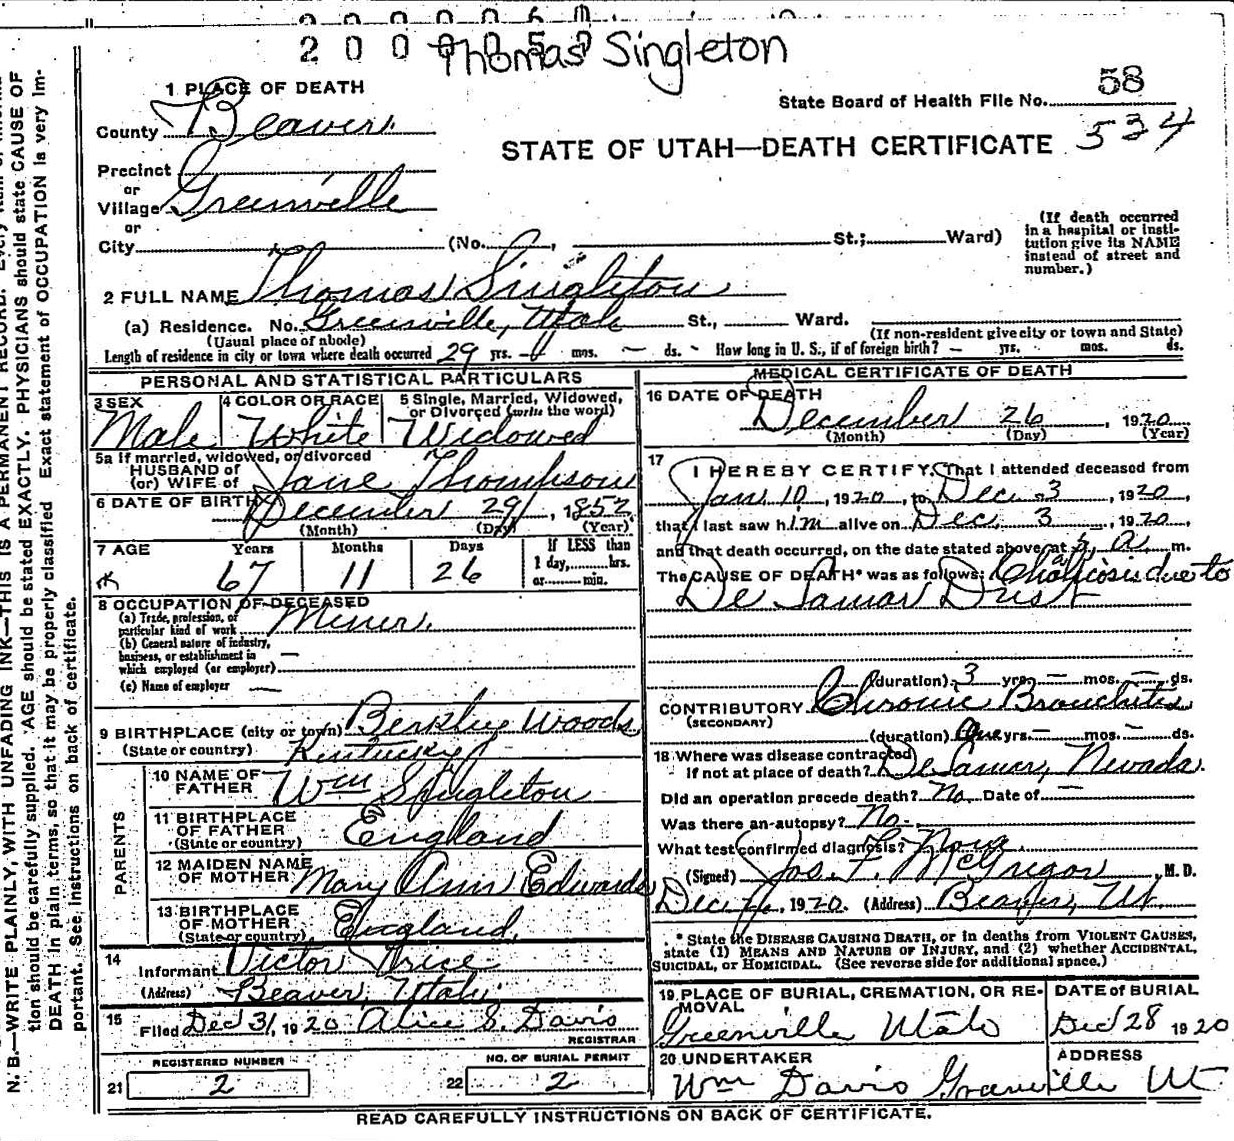 2 0 0 0 0 5 0
Thomas Singleton
1 PLACE OF DEATH
County Beaver
State Board of Health File No. 58
534
STATE OF UTAH—DEATH CERTIFICATE
Precinct
or
Village Greenville
or
City (No. , St.; Ward)
(If death occurred
in a hospital or insti-
tution give its NAME
instead of street and
number.)
2 FULL NAME Thomas Singleton
(a) Residence. No. Greenville, Utah St., Ward.
(Usual place of abode) (If non-resident give city or town and State)
Length of residence in city or town where death occurred 29 yrs. - mos. - ds. - How long in U. S., if of foreign birth? - yrs. mos. ds.
PERSONAL AND STATISTICAL PARTICULARS
3 SEX
Male
4 COLOR OR RACE
White
5 Single, Married, Widowed,
or Divorced (write the word)
Widowed
5a If married, widowed, or divorced
HUSBAND of
(or) WIFE of Jane Thompson
6 DATE OF BIRTH December 29, 1852
(Month) (Day) (Year)
7 AGE Years Months Days If LESS than
1 day, hrs.
or min.
67 11 26
8 OCCUPATION OF DECEASED
(a) Trade, profession, or
particular kind of work Miner.
(b) General nature of industry,
business, or establishment in
which employed (or employer) —
(c) Name of employer —
9 BIRTHPLACE (city or town) Berkley Woods
(State or country) Kentucky
PARENTS
10 NAME OF
FATHER Wm Singleton
11 BIRTHPLACE
OF FATHER
(State or country) England
12 MAIDEN NAME
OF MOTHER Mary Ann Edwards
13 BIRTHPLACE
OF MOTHER
(State or country) England.
14
Informant Victor Price
(Address) Beaver, Utah.
15
Filed Dec 31, 1920 Alice S. Davis
REGISTRAR
REGISTERED NUMBER
21 2
NO. OF BURIAL PERMIT
22 2
MEDICAL CERTIFICATE OF DEATH
16 DATE OF DEATH
December 26, 1920
(Month) (Day) (Year)
17
I HEREBY CERTIFY, That I attended deceased from
Jan 10, 1920, to Dec. 3, 1920,
that I last saw him alive on Dec. 3, 1920
and that death occurred, on the date stated above, at 5 A m.
The CAUSE OF DEATH* was as follows: Chalicosis due to
De Lamar Dust
(duration) 3 yrs. — mos. — ds.
CONTRIBUTORY Chronic Bronchitis
(SECONDARY)
(duration) One yrs. — mos. — ds.
18 Where was disease contracted
if not at place of death? De Lamar, Nevada.
Did an operation precede death? No Date of —
Was there an autopsy? No.
What test confirmed diagnosis? None
(Signed) Jos. F. McGregor, M. D.
Dec, 1920. (Address) Beaver, Ut
* State the DISEASE CAUSING DEATH, or in deaths from VIOLENT CAUSES,
state (1) MEANS AND NATURE OF INJURY, and (2) whether ACCIDENTAL,
SUICIDAL, or HOMICIDAL. (See reverse side for additional space.)
19 PLACE OF BURIAL, CREMATION, OR RE-
MOVAL
Greenville Utah
DATE of BURIAL
Dec 28 1920
20 UNDERTAKER
Wm Davis
ADDRESS
Greenville Ut
READ CAREFULLY INSTRUCTIONS ON BACK OF CERTIFICATE.
N. B.—WRITE PLAINLY, WITH UNFADING INK—THIS IS A PERMANENT RECORD. Every
tion should be carefully supplied. AGE should be stated EXACTLY. PHYSICIANS should state CAUSE OF
DEATH in plain terms, so that it may be properly classified. Exact statement of OCCUPATION is very im-
portant. See instructions on back of certificate.